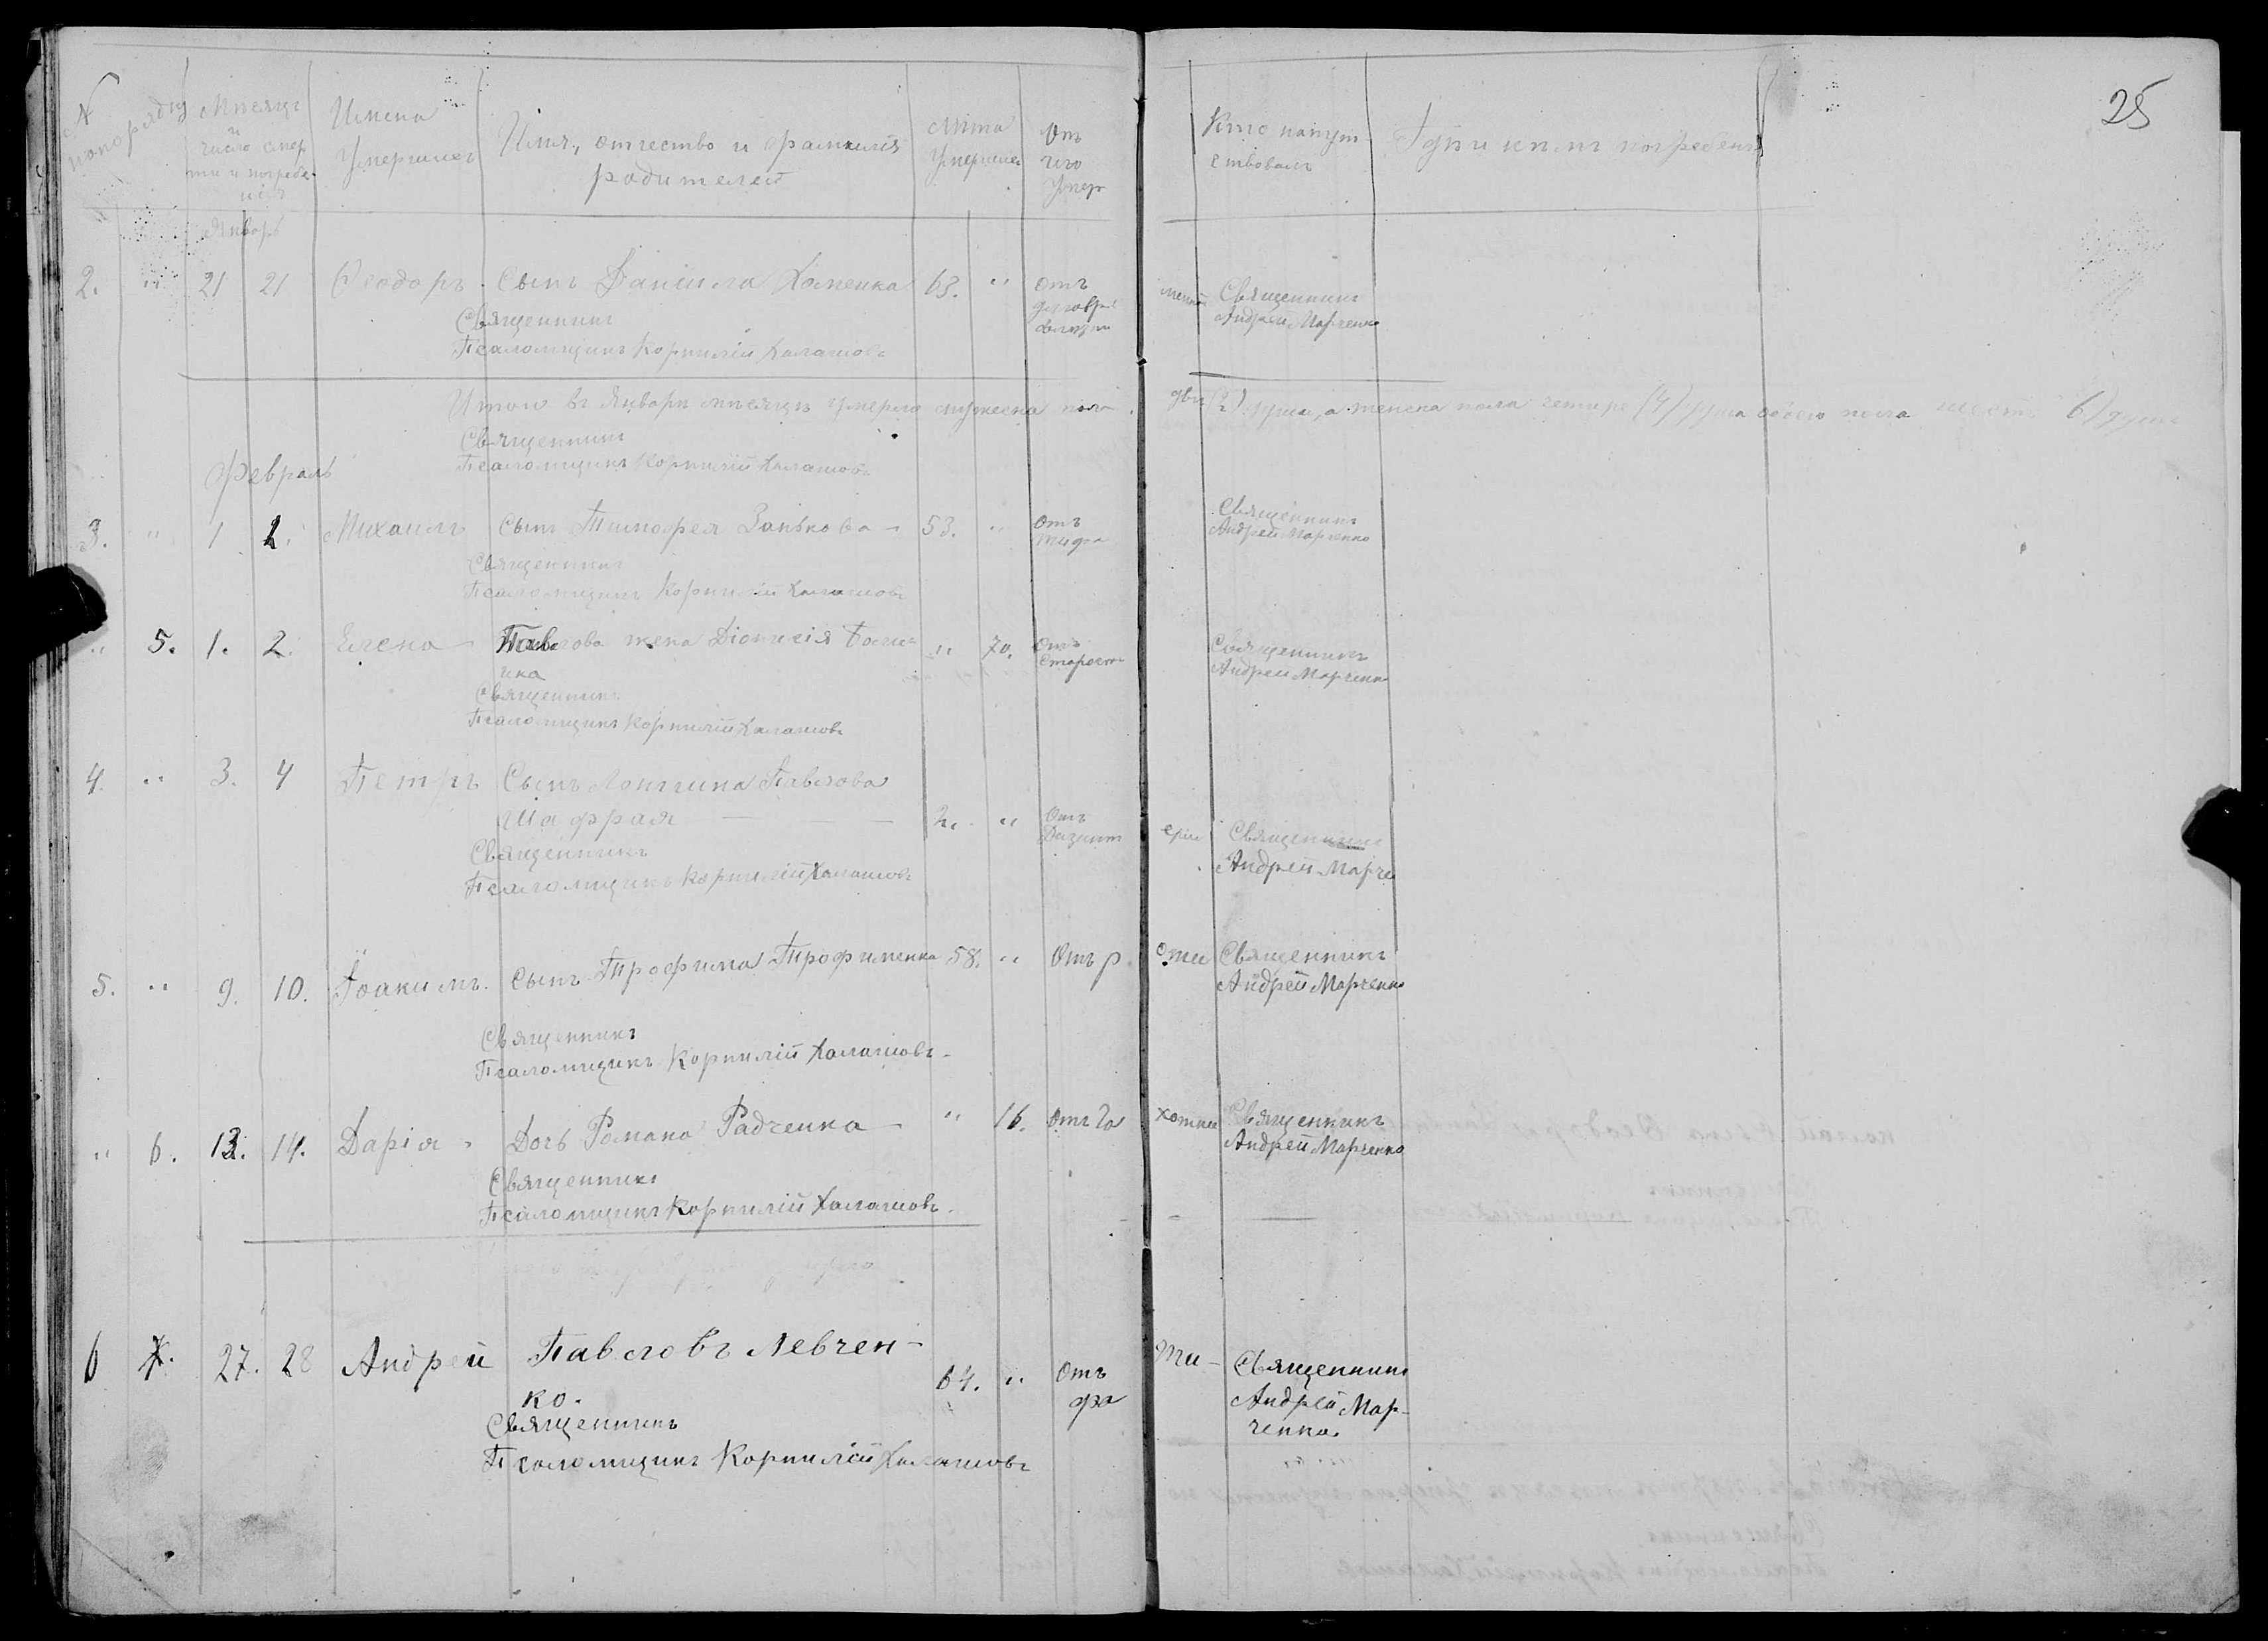 25
№ по порядку
Месяцъ и число смерти и погребенія
Имена Умершихъ
Имя, отчество и фамилія родителей
Лѣта Умершихъ
Отъ чего умеръ
Кто напутствовалъ
Гдѣ и кѣмъ погребенъ
Январь
2. " 21 21 Ѳеодоръ Сынъ Даніила Хоменка 63. " отъ
Священникъ
Андрей Марченко
Священникъ
Псаломщикъ Корнилій Халашовъ
Итого въ Январѣ мѣсяцѣ умерло мужеска пола двѣ (2) души, а женска пола четыре (4) души обоего пола шесть 6) душъ
Священникъ
Псаломщикъ Корнилій Халашовъ
Февраль
3. " 1 2. Михаилъ Сынъ Тимофея Занькова 53. " отъ тифа
Священникъ
Андрей Марченко
Священникъ
Псаломщикъ Корнилій Халашовъ
" 5. 1. 2. Елена Павлова жена Діонисія
" 70. отъ старости
Священникъ
Андрей Марченко
Священникъ
Псаломщикъ Корнилій Халашовъ
4. " 3. 4 Петръ Сынъ Лонгина Павлова
Шафрая 2. " Отъ Дизентеріи
Священникъ
Андрей Марче
Священникъ
Псаломщикъ Корнилій Халашовъ
5. " 9. 10. Іоакимъ. Сынъ Трофима Трофименка 58. " Отъ
Священникъ
Андрей Марченко
Священникъ
Псаломщикъ Корнилій Халашовъ
" 6. 13. 14. Дарія Дочь Романа Радченка " 16. отъ Чахотки
Священникъ
Андрей Марченко
Священникъ
Псаломщикъ Корнилій Халашовъ.
6 27. 28 Андрей Павловъ Левчен-
ко. 64. " Отъ
Священникъ
Андрей Мар-
ченко.
Священникъ
Псаломщикъ Корнилій Халашовъ